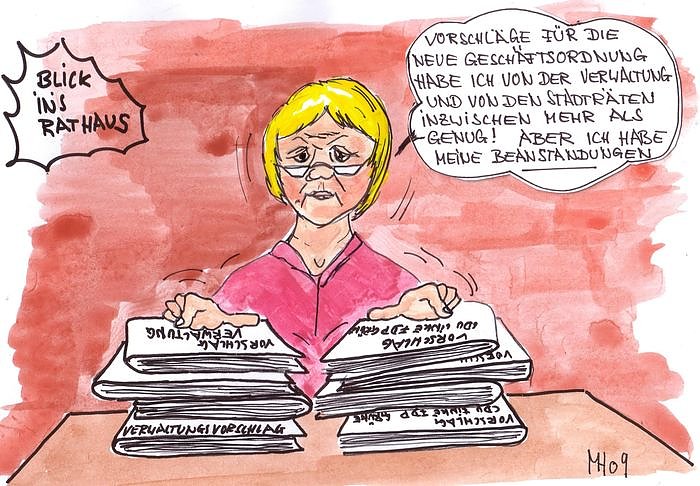 BLICK
INS
RATHAUS
VORSCHLÄGE FÜR DIE
NEUE GESCHÄFTSORDNUNG
HABE ICH VON DER VERWALTUNG
UND VON DEN STADTRÄTEN
INZWISCHEN MEHR ALS
GENUG! ABER ICH HABE
MEINE BEANSTANDUNGEN
VORSCHLAG
VERWALTUNG
VERWALTUNGSVORSCHLAG
VORSCHLAG
CDU LINKE FDP GRÜNE
VORSCHL
VORSCHLAG
CDU LINKE FDP GRÜNE
MH09